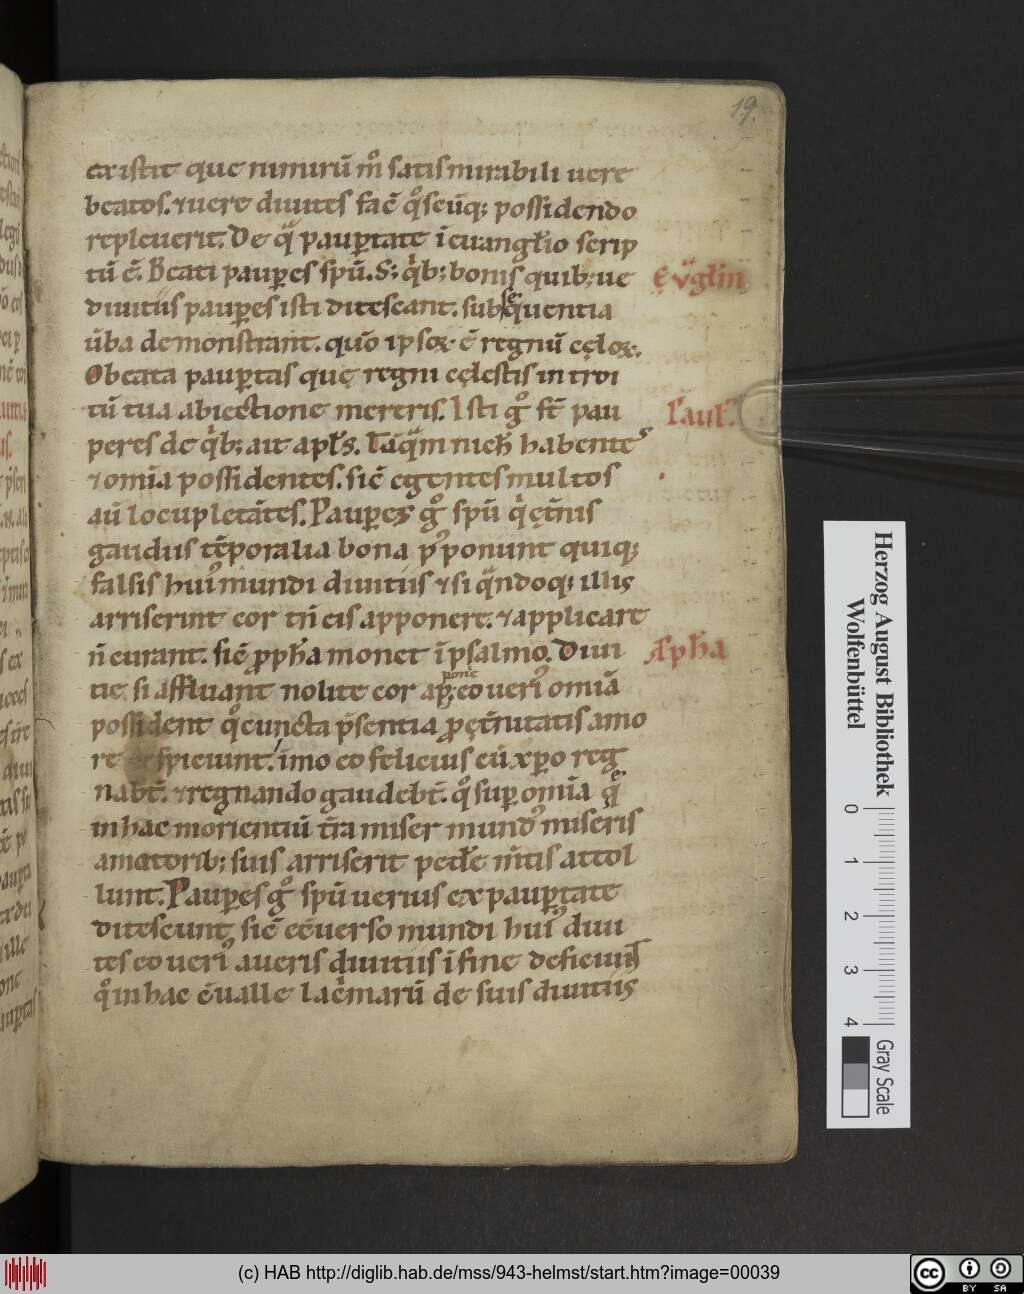 19.
existit que nimirū m̊ satis mirabili uere
beatos. ⁊ uere diuites facē qͦseūq; possidendo
repleuerit. De qͣ paup̱tate ī euangłio scrip
tū ē. Beati paup̱es spū. S; qͥb; bonis quib; ue
ęvͣgłiū
diuitiis paup̱es isti ditescant. subseq̄uentia
ūba demonstrant. quō ipsoꝝ ē regnū cęloꝝ.
O beata paup̱tas que regni cęlestis introi
tū tua abiectione mereris. Isti gͦ st̄ pau
Paulꝰ
peres de qͥb; ait apłs. Tāqͣm nich̄ habenteˢ
⁊ omīa possidentes. sic̄ egentes multos
aū locupletātes. Paup̱es gͦ spū qͥ ęt̄nis
gaudiis tēporalia bona p̄ponunt quiq;
falsis huiꝰ mundi diuitiis ⁊ si qͣndoq; illis
arriserint cor tn̄ eis apponere. ⁊ applicare
n̄ curant. sic̄ ꝓph̄a monet ī psalmo. Diui
Ꝓph̄a
tie si affluant nolite cor ap̱
pone
eo ueriꝰ omīa
possident qͦ cuncta p̄sentia ꝓ ęt̄nitatis amo
re despiciunt. īmo eo felicius cū xp̱o reg
nabt̄. ⁊ regnando gaudebt̄. qͦ sup̱ omīa q̄
in hac morientiū t̄ra miser mundꝰ miseris
amatorib; suis arriserit pede m̄tis attol
lunt. Paup̱es gͦ spū uerius ex paup̱tate
ditescunt sic̄ ecōuerso mundi huiꝰ diui
tes eo ueriꝰ a ueris diuitiis ī fine deficiunt
qͦ in hac cōualle lacͥmarū de suis diuitiis
Herzog August Bibliothek
Wolfenbüttel
0 1 2 3 4
Gray Scale
(c) HAB http://diglib.hab.de/mss/943-helmst/start.htm?image=00039
cc BY SA